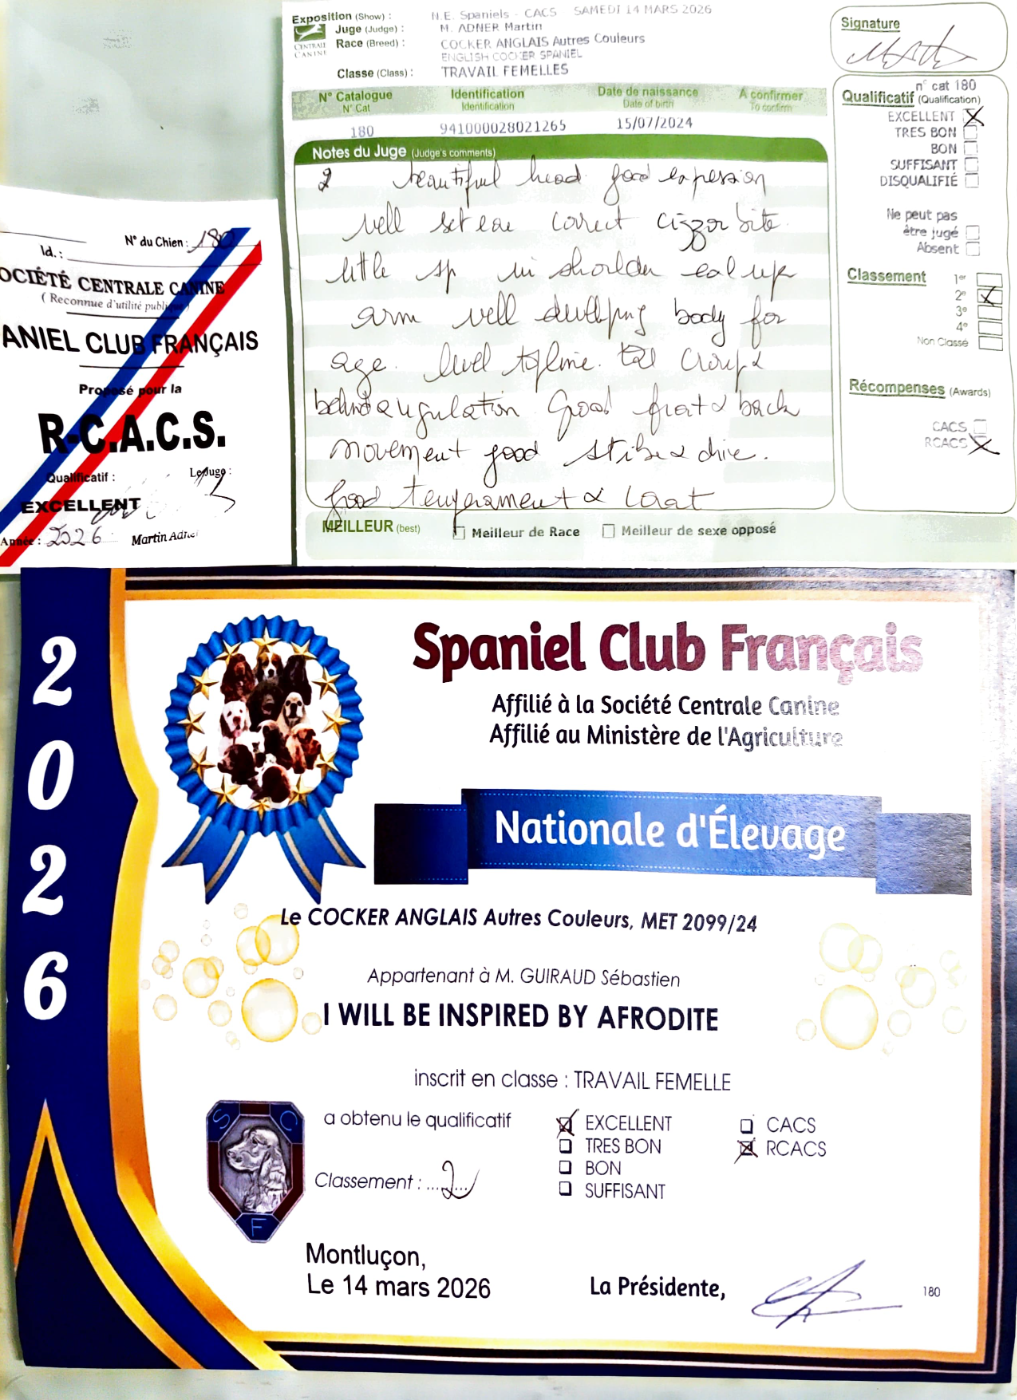 Exposition (Show) : N.E. Spaniels - CACS SAMEDI 14 MARS 2026
Juge (Judge) : M. ADNER Martin
Race (Breed) : COCKER ANGLAIS Autres Couleurs
ENGLISH COCKER SPANIEL
Classe (Class) : TRAVAIL FEMELLES
CENTRALE
CANINE
N° Catalogue Identification Date de naissance A confirmer
N° Cat Identification Date of birth To confirm
180 941000028021265 15/07/2024
Notes du Juge (Judge's comments)
2 beautiful head good expession
well set ear correct cizzor bite.
little up in shoulder
arm well body for
age. level topline. croup &
behind angulation Good front & back
movement good & drive.
good temperament & coat
MEILLEUR (best) Meilleur de Race Meilleur de sexe opposé
Signature
n° cat 180
Qualificatif (Qualification)
EXCELLENT
TRES BON
BON
SUFFISANT
DISQUALIFIÉ
Ne peut pas
être jugé
Absent
Classement 1er
2e
3e
4e
Non Classé
Récompenses (Awards)
CACS
RCACS
N° du Chien : 180
Id. :
SOCIÉTÉ CENTRALE CANINE
( Reconnue d'utilité publique
ANIEL CLUB FRANÇAIS
Proposé pour la
R-C.A.C.S.
Qualificatif : Le Juge :
EXCELLENT
Année : 2026 Martin Adner
2026
Spaniel Club Français
Affilié à la Société Centrale Canine
Affilié au Ministère de l'Agriculture
Nationale d'Élevage
Le COCKER ANGLAIS Autres Couleurs, MET 2099/24
Appartenant à M. GUIRAUD Sébastien
I WILL BE INSPIRED BY AFRODITE
inscrit en classe : TRAVAIL FEMELLE
a obtenu le qualificatif EXCELLENT CACS
TRES BON RCACS
BON
Classement : ...2...
SUFFISANT
S C
F
Montluçon,
Le 14 mars 2026
La Présidente,
180